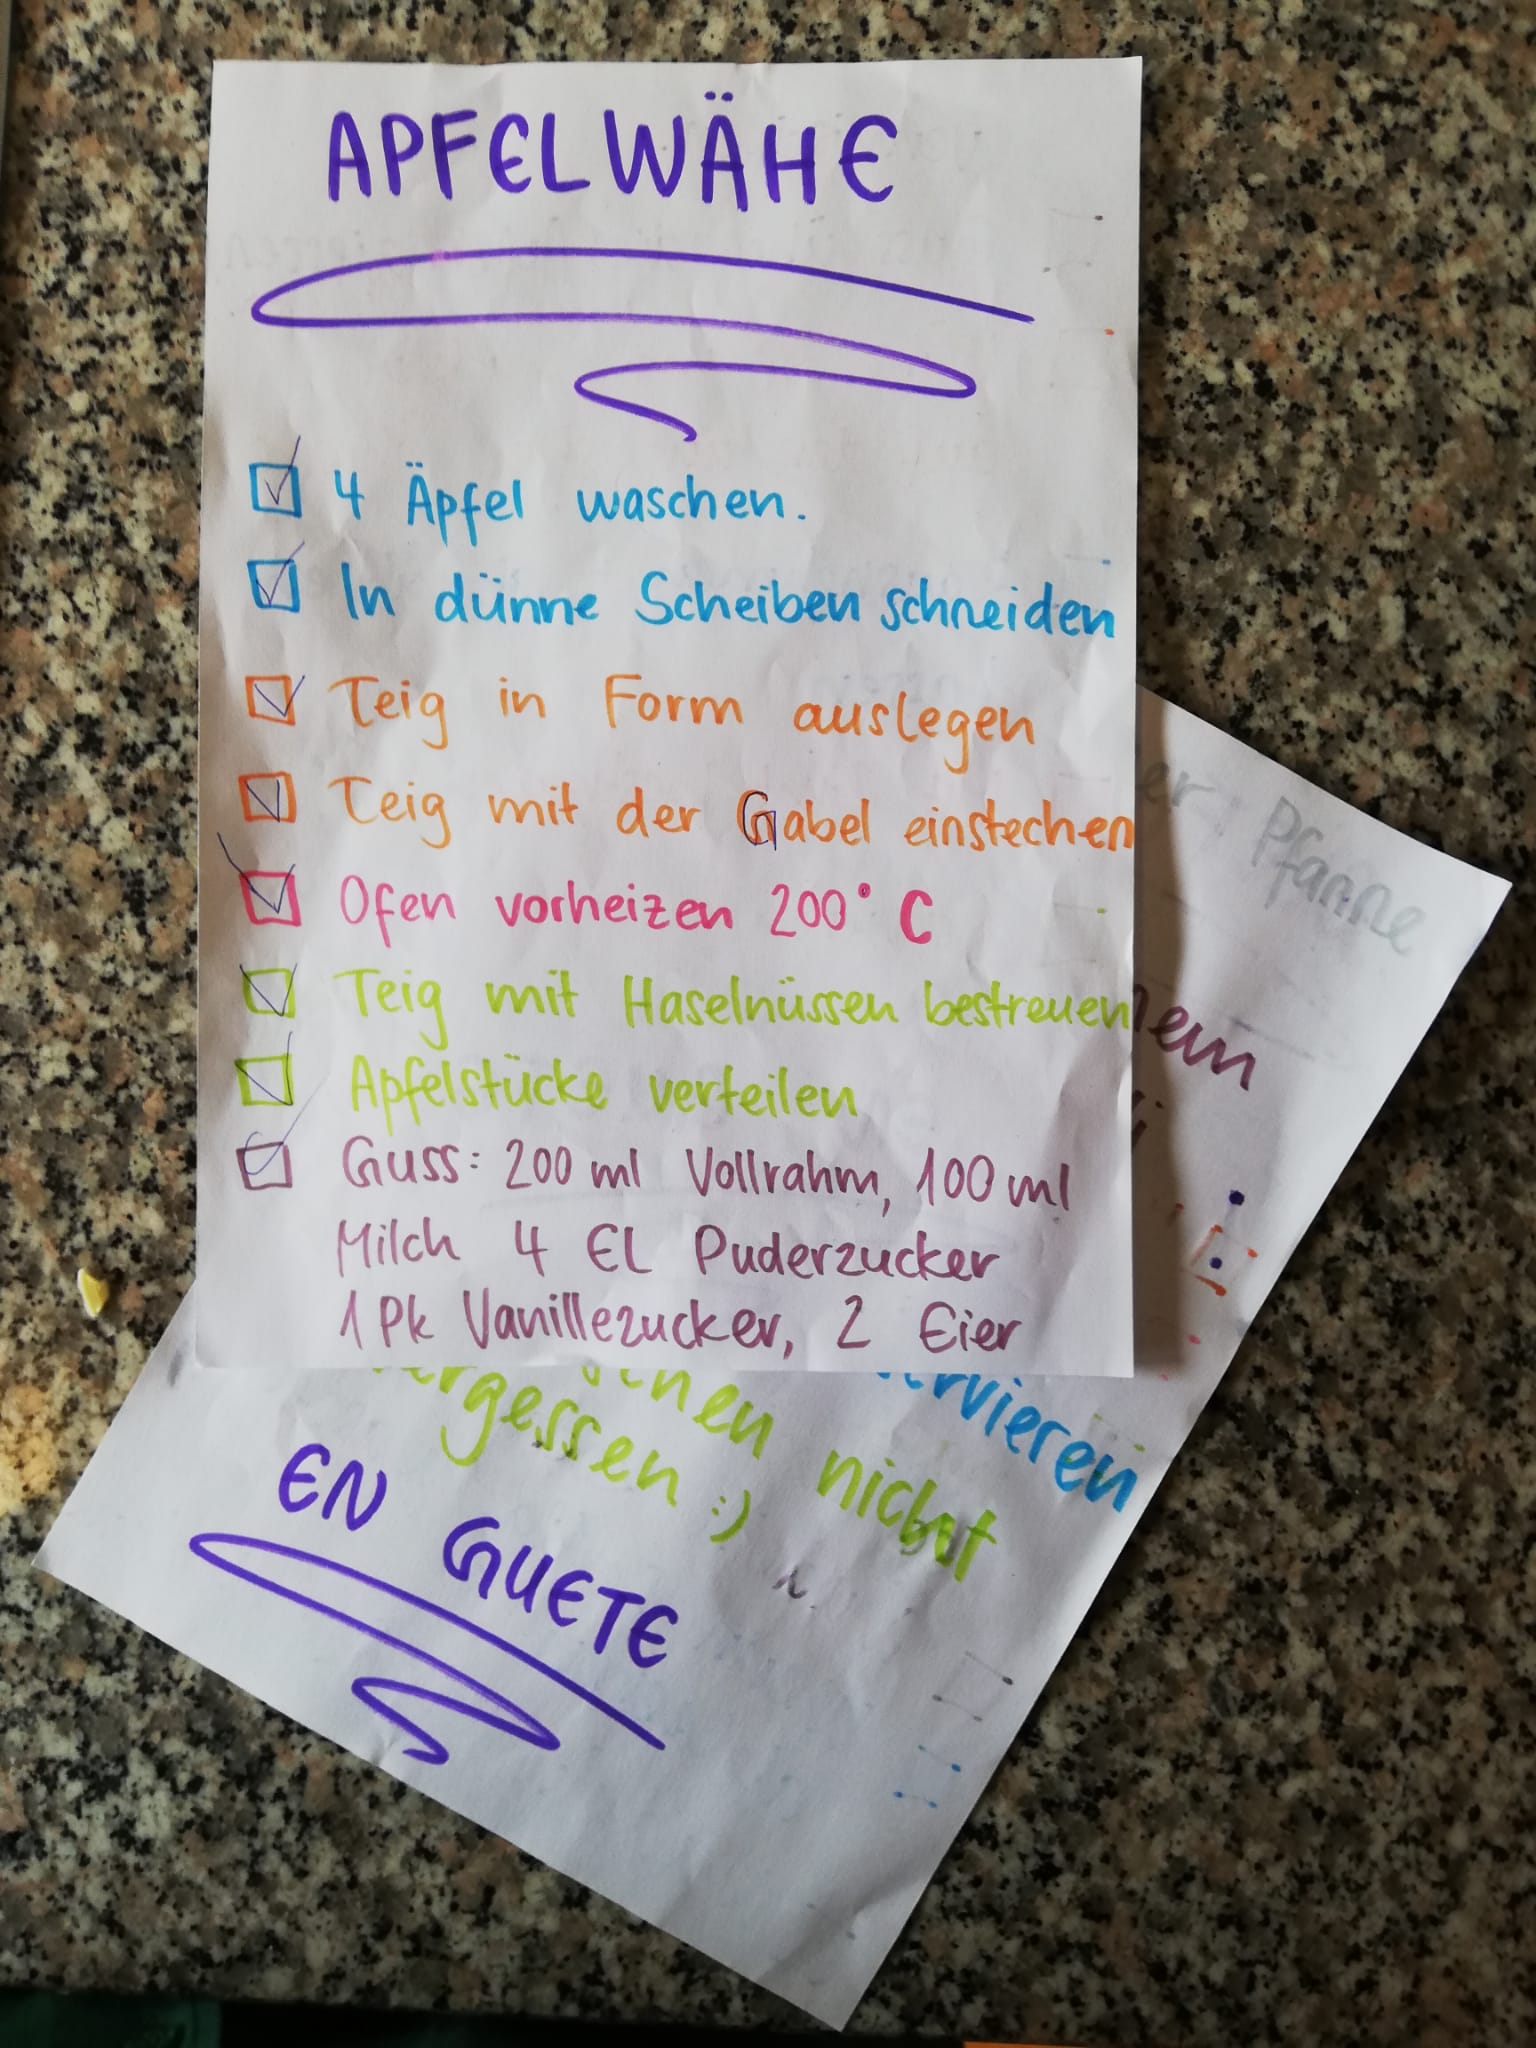 APFELWÄHE
4 Äpfel waschen.
In dünne Scheiben schneiden
Teig in Form auslegen
Teig mit der Gabel einstechen
Ofen vorheizen 200° C
Teig mit Haselnüssen bestreuen
Apfelstücke verteilen
Guss: 200 ml Vollrahm, 100 ml
Milch 4 EL Puderzucker
1 Pk Vanillezucker, 2 Eier
Pfanne
nicht
:)
EN GUETE